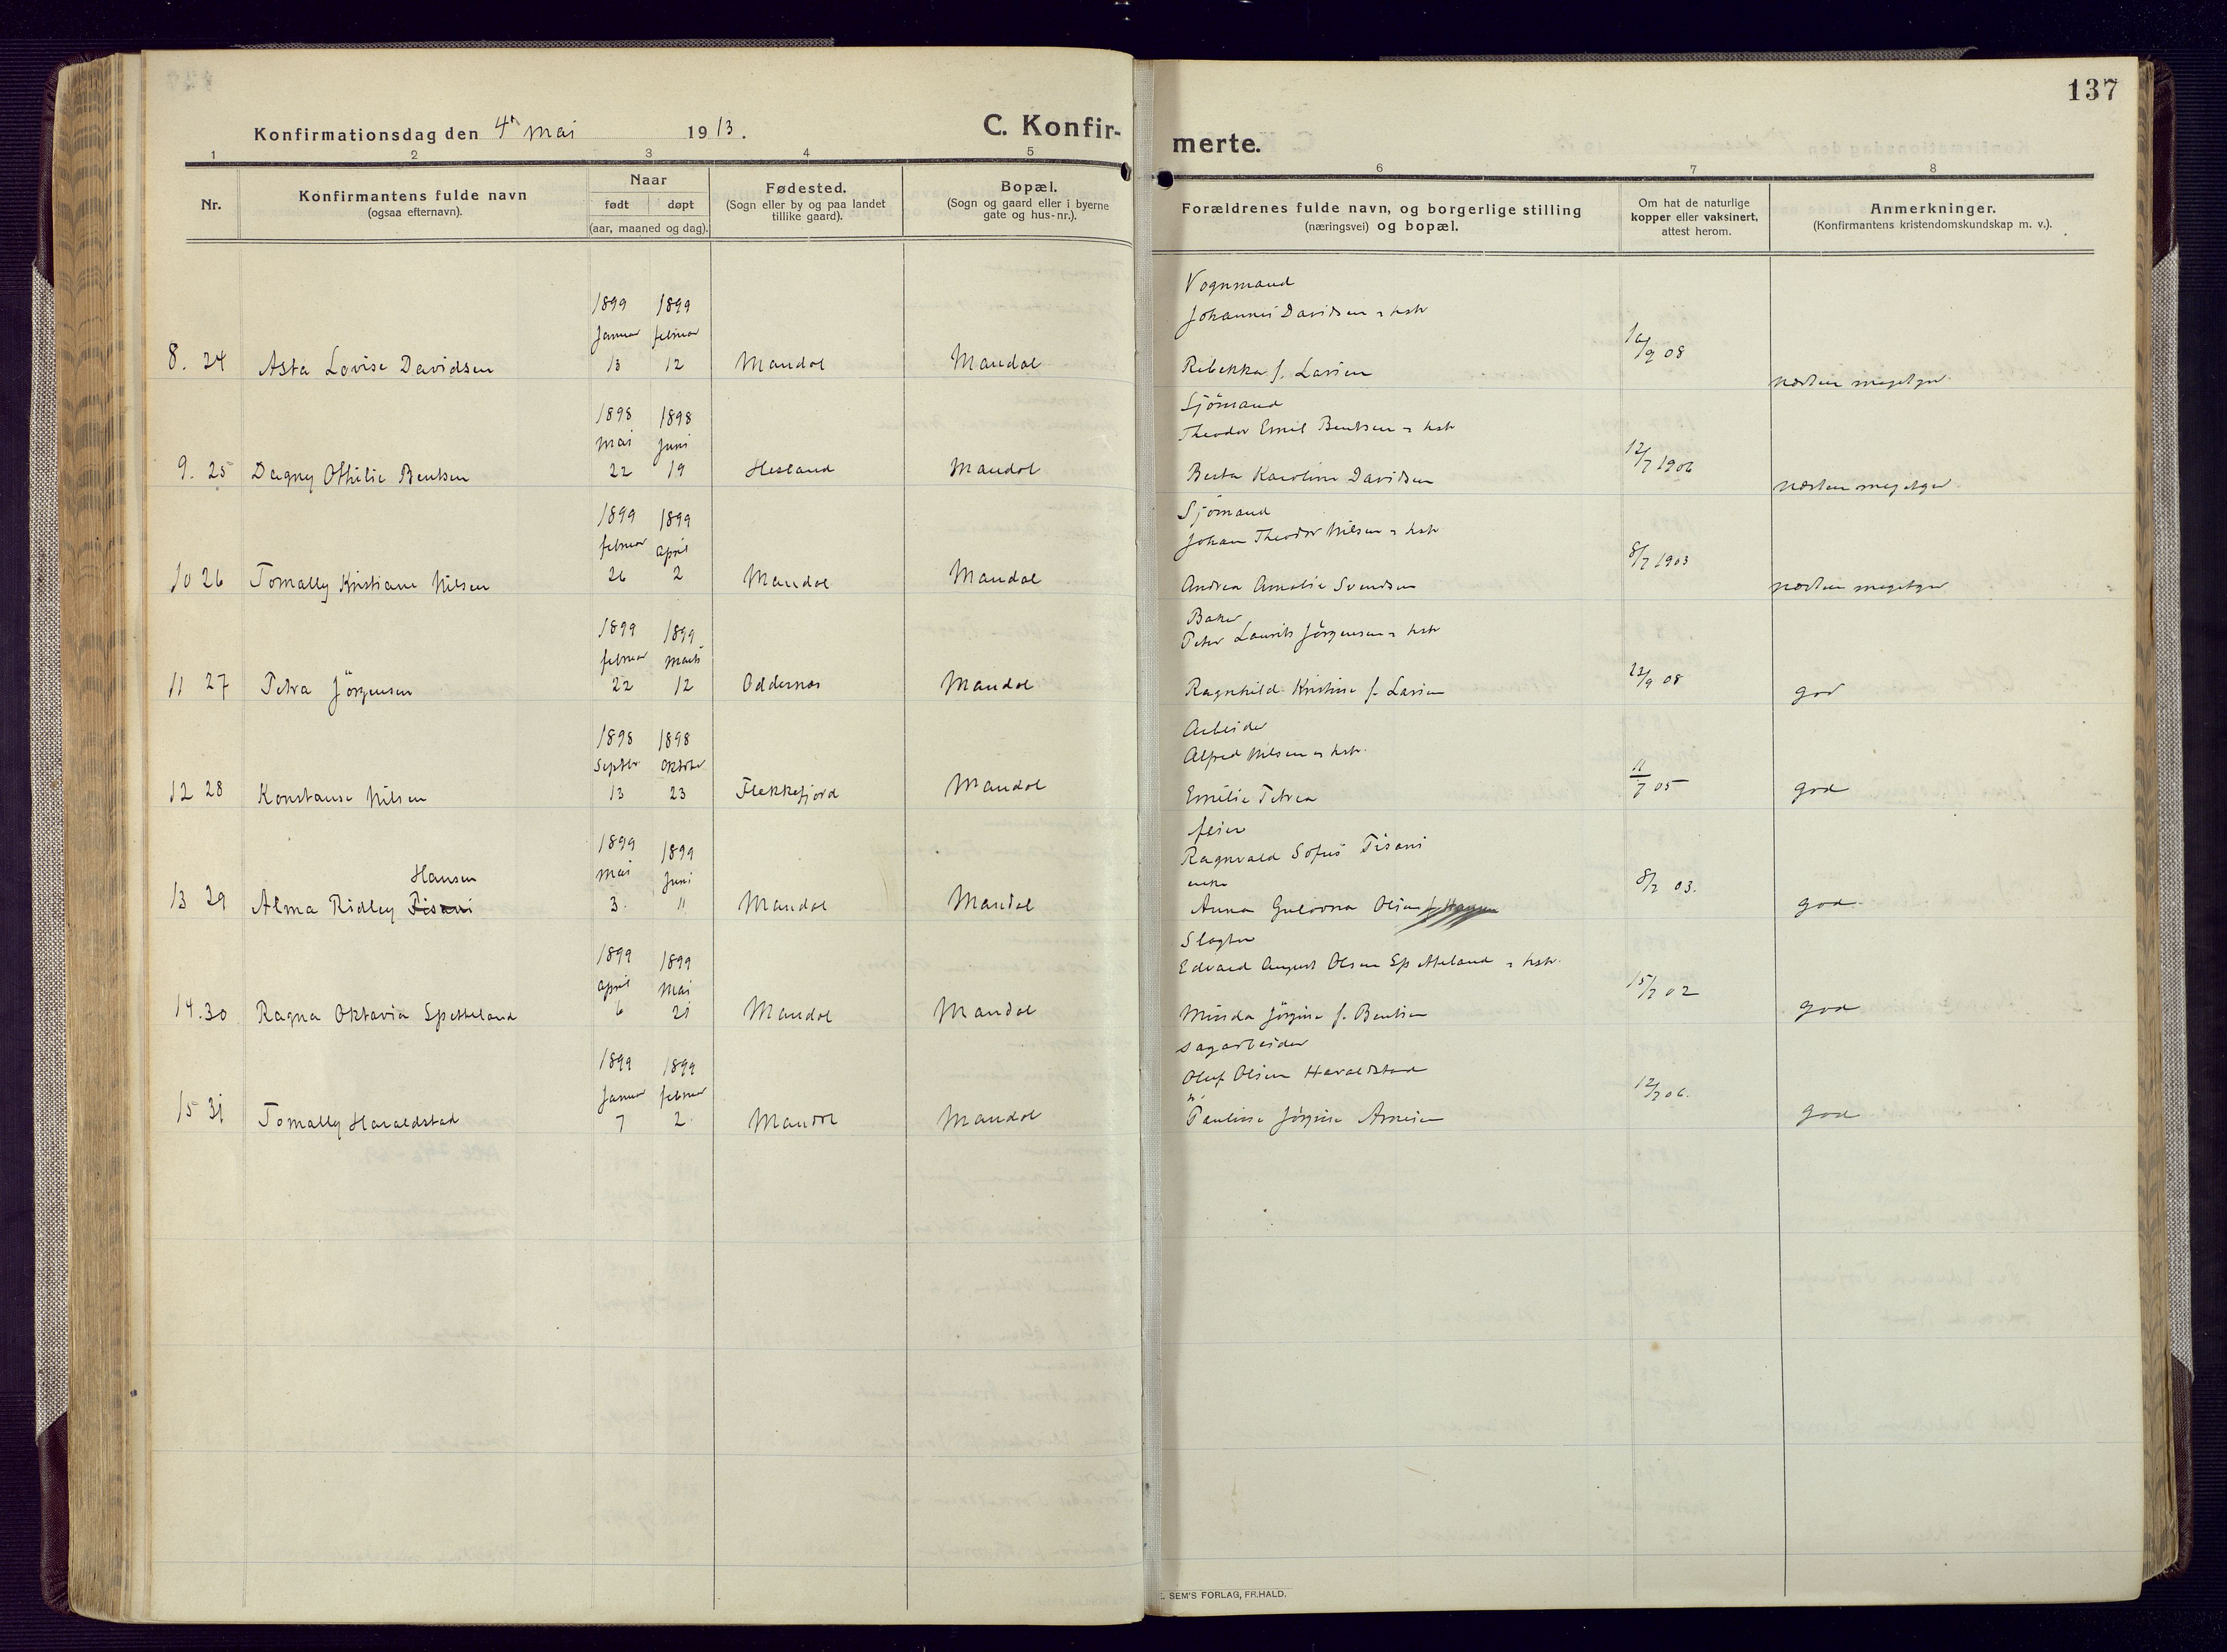 137
Konfirmationsdag den 4' mai 1913.
C. Konfirmerte.
1 2 3 4 5 6 7 8
Nr.
Konfirmantens fulde navn
(ogsaa efternavn).
Naar
født døpt
(aar, maaned og dag).
Fødested.
(Sogn eller by og paa landet
tillike gaard).
Bopæl.
(Sogn og gaard eller i byerne
gate og hus-nr.).
Forældrenes fulde navn, og borgerlige stilling
(næringsvei) og bopæl.
Om hat de naturlige
kopper eller vaksinert,
attest herom.
Anmerkninger.
(Konfirmantens kristendomskundskap m. v.).
1899 1899 Vognmand
Januar februar Johannes Davidsen & hstr
8. 24 Asta Lovise Davidsen 13 12 Mandal Mandal Rebekka f. Larsen 16/9 08 næsten megetgod
1898 1898 Sjömand
mai juni Theodor Emil Bentsen & hstr
9. 25 Dagny Othilie Bentsen 22 19 Hesland Mandal Berta Karoline Davidsen 12/7 1906 næsten megetgod
1899 1899 Sjömand
februar april Johan Theodor Nilsen & hstr
10 26 Tomally Kristiane Nilsen 26 2 Mandal Mandal Andrea Amalie Svendsen 8/7 1903 næsten megetgod
1899 1899 Baker
februar marts Peter Laurits Jörgensen & hstr
11 27 Petra Jörgensen 22 12 Oddernæs Mandal Ragnhild Kristine f. Larsen 12/9 08 god
1898 1898 Arbeider
Septbr Oktober Alfred Nilsen & hstr.
12 28 Konstanse Nilsen 13 23 Flekkefjord Mandal Emilie Petrea 11/7 05 god
1899 1899 feier
mai juni Ragnvald Sofus Pisani
Hansen enke
13 29 Alma Ridley Pisani 3. 11 Mandal Mandal Anna Gulovna Olsen f. Hansen 8/7 03. god
1899 1899 Slagter
april mai Edvard August Olsen Spetteland & hstr.
14. 30 Ragna Oktavia Spetteland 6 21 Mandal Mandal Minda Jörgine f. Bentsen 15/7 02 god
1899 1899 sagarbeider
Januar februar Oluf Olsen Haraldstad
15 31 Tomally Haraldstad 7 2. Mandal Mandal Pauline Jörgine Arnesen 12/7 06. god
SEM'S FORLAG, FR.HALD.